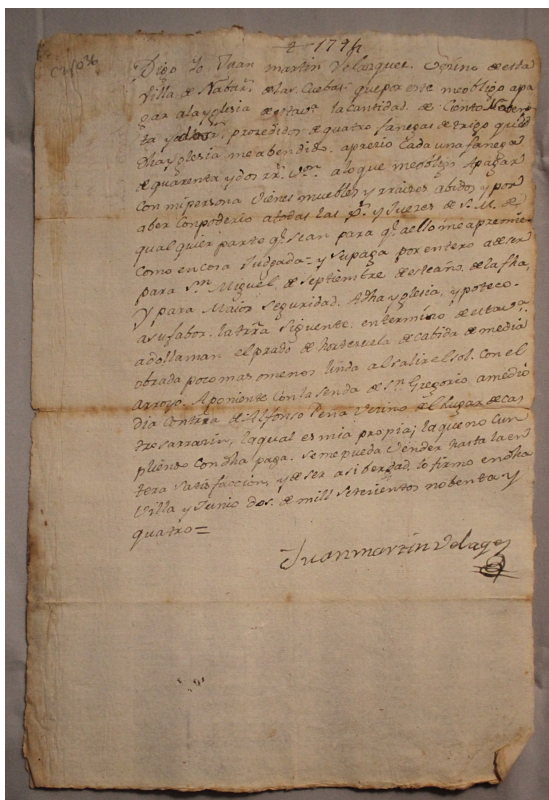 1794
Digo Yo Juan martin Velazquez. Vezino de esta
Villa de Nabar. de las Cuebas; que por este me obligo apa
gar ala yglesia de esta va. la Cantidad de Ciento Noben
ta y dos rr. prozedidos de quatro fanegas de trigo que
dha yglesia me abendido. aprezio Cada una fanega
de quarenta y dos rr. vn. alo que me obligo Apagar
Con mi persona vienes muebles y rraizes abidos y por
aber Con poderio atodas las y Juezes de S. M. de
qual quier parte q. sean para q. aello me apremie
Como en cosa Juzgada y su paga por entero a de ser
para Sn. Miguel de Septiembre de este año de la fha.
Y para Maior seguridad. Adha yglesia, ypoteco.
asu fabor. la trra siguiente. en termino de esta va.
ado llaman el prado de hortezuela de Cabida de media
obrada poco mas omenos linda al salir el sol. Con el
arroyo. Aponiente Con la senda de Sn. Gregorio amedio
dia Con trra de Alfonso Peña Vezino del lugar de Cas
tro sarrazin, laqual es mia propia; la que no Cun
pliendo Con dha paga. se me pueda Vender hasta la en
tera satisfaccion, y de ser asi berdad, lo firmo en dha
Villa y Junio dos. de mill setezientos nobenta y
quatro=
Juan martin Velazqz